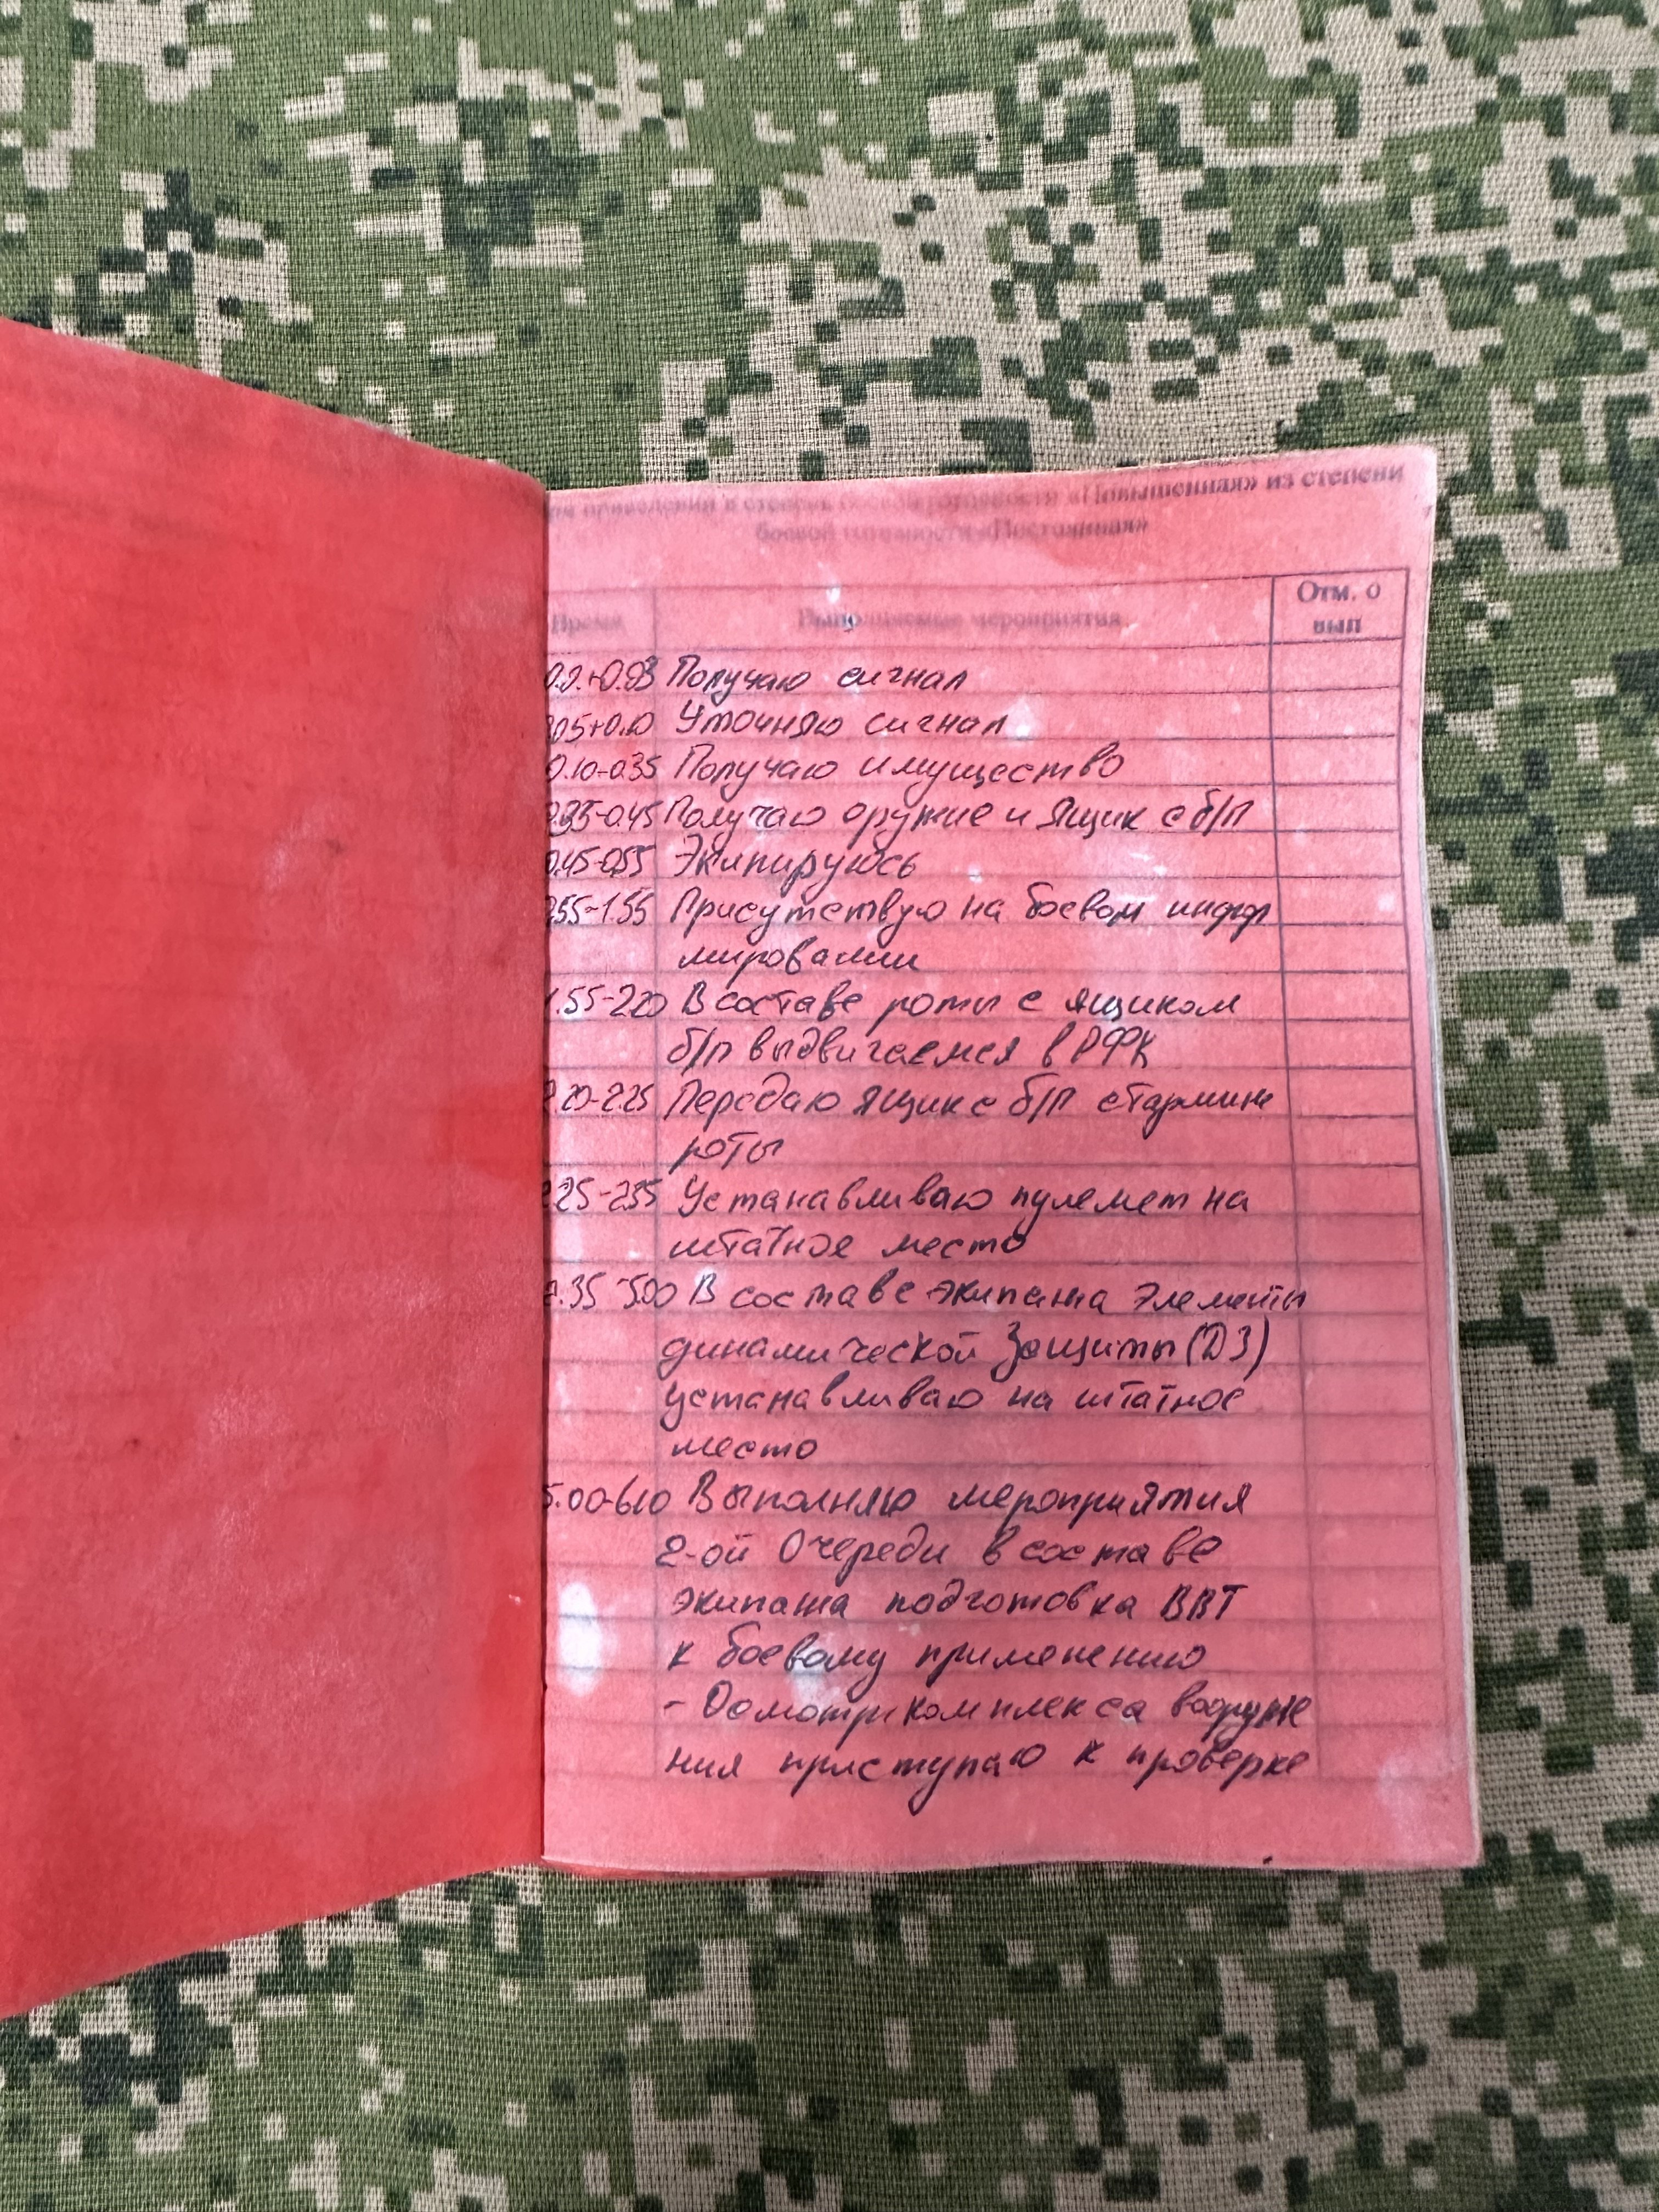 приведения в степень боевой готовности «Повышенная» из степени
боевой готовности «Постоянная»
Время Выполняемые мероприятия Отм. о
вып
Получаю сигнал
Уточняю сигнал
0.10-0.35 Получаю имущество
0.35-0.45 Получаю оружие и ящик с б/п
0.45-0.55 Экипируюсь
0.55-1.55 Присутствую на боевом инфор
мировании
1.55-2.20 В составе роты с ящиком
б/п выдвигаемся в РФК
2.20-2.25 Передаю ящик с б/п старшине
роты
2.25-2.35 Устанавливаю пулемет на
штатное место
2.35-5.00 В составе экипажа элементы
динамической защиты (ДЗ)
устанавливаю на штатное
место
5.00-6.10 Выполняю мероприятия
2-ой очереди в составе
экипажа подготовка ВВТ
к боевому применению
- Осмотр комплекса вооруже
ния приступаю к проверке